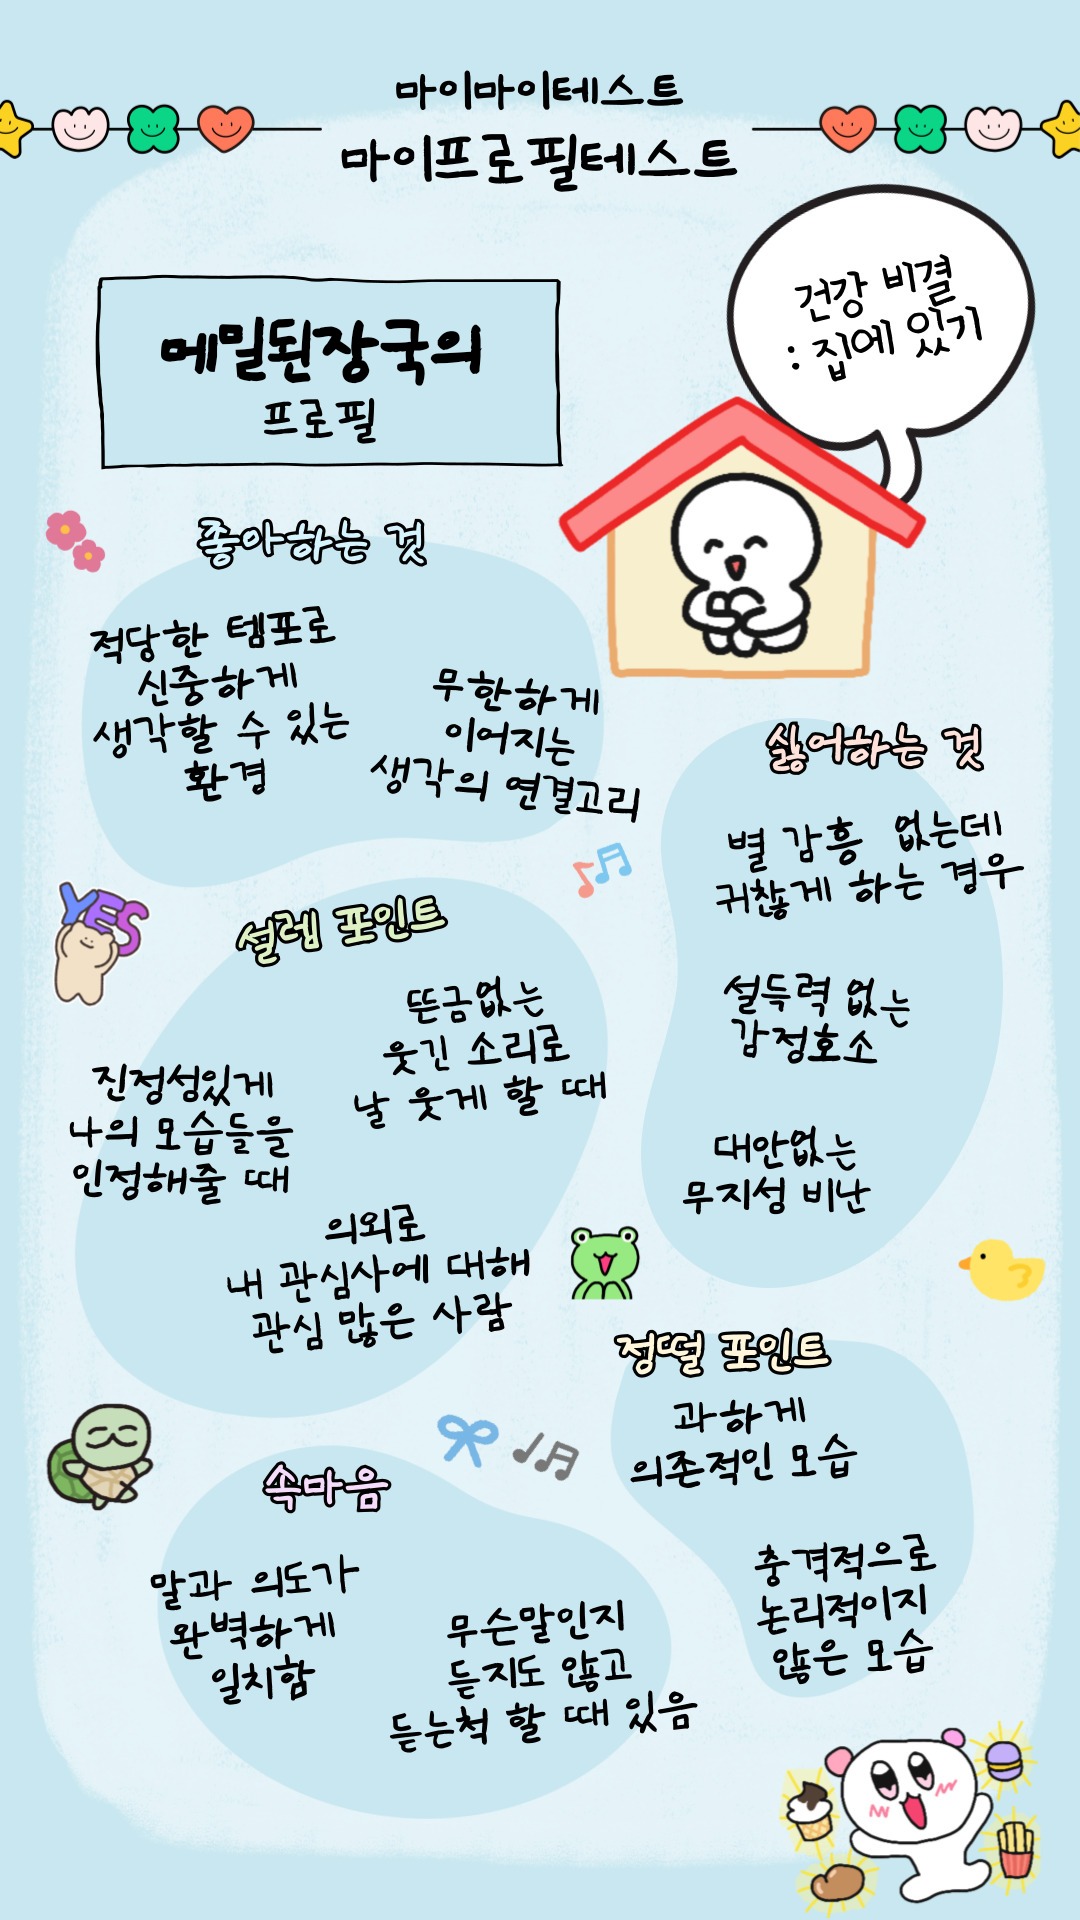 마이마이테스트
마이프로필테스트
건강 비결
: 집에 있기
메밀된장국의
프로필
좋아하는 것
적당한 템포로
신중하게
생각할 수 있는
환경
무한하게
이어지는
생각의 연결고리
싫어하는 것
별 감흥 없는데
귀찮게 하는 경우
설득력 없는
감정호소
대안없는
무지성 비난
YES
설렘 포인트
뜬금없는
웃긴 소리로
날 웃게 할 때
진정성있게
나의 모습들을
인정해줄 때
의외로
내 관심사에 대해
관심 많은 사람
정떨 포인트
과하게
의존적인 모습
충격적으로
논리적이지
않은 모습
속마음
말과 의도가
완벽하게
일치함
무슨말인지
듣지도 않고
듣는척 할 때 있음